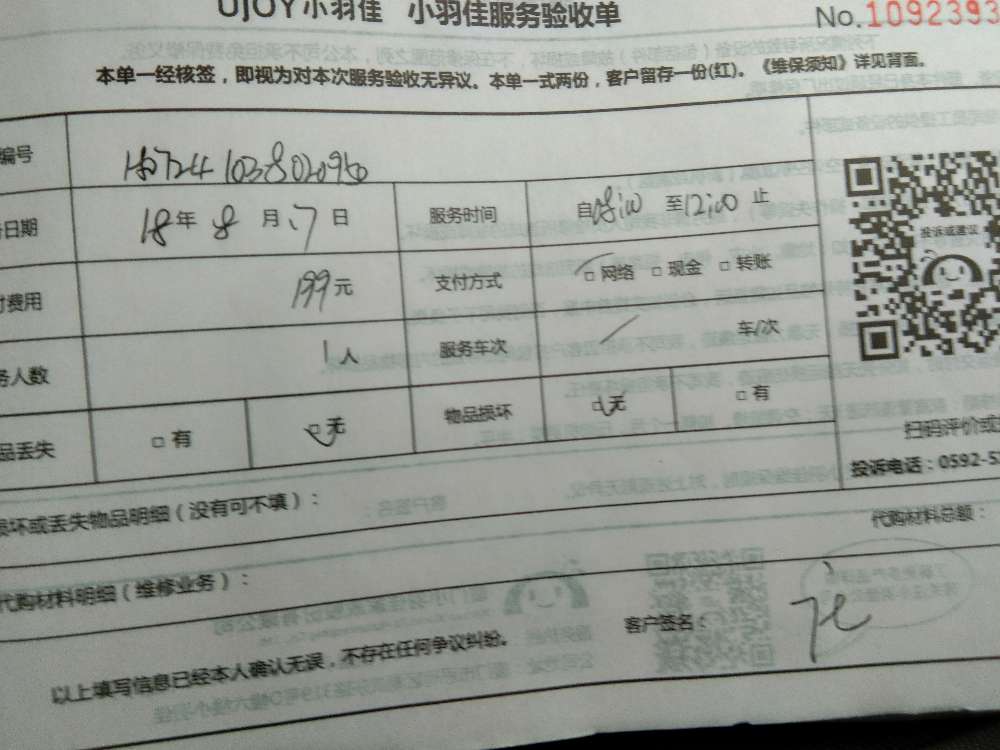 UJOY小羽佳 小羽佳服务验收单 No.1092393
本单一经核签，即视为对本次服务验收无异议。本单一式两份，客户留存一份(红)。《维保须知》详见背面。
编号
日期 18年8月17日 服务时间 自08:00至12:00止
费用 199元 支付方式 □网络 □现金 □转账
务人数 1人 服务车次 / 车/次
品丢失 □有 □无 物品损坏 □无 □有
投诉或建议
扫码评价或
投诉电话：0592-5
损坏或丢失物品明细（没有可不填）：
代购材料总额：
代购材料明细（维修业务）：
客户签名：
以上填写信息已经本人确认无误，不存在任何争议纠纷。